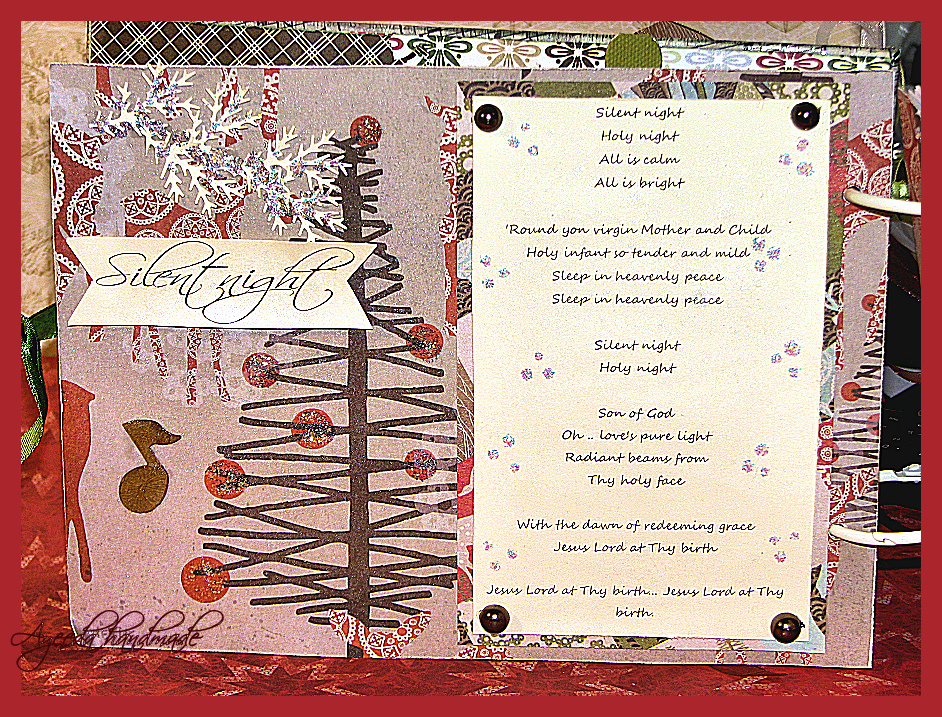 Silent night
Silent night
Holy night
All is calm
All is bright
'Round yon virgin Mother and Child
Holy infant so tender and mild
Sleep in heavenly peace
Sleep in heavenly peace
Silent night
Holy night
Son of God
Oh .. love's pure light
Radiant beams from
Thy holy face
With the dawn of redeeming grace
Jesus Lord at Thy birth
Jesus Lord at Thy birth... Jesus Lord at Thy
birth.
handmade